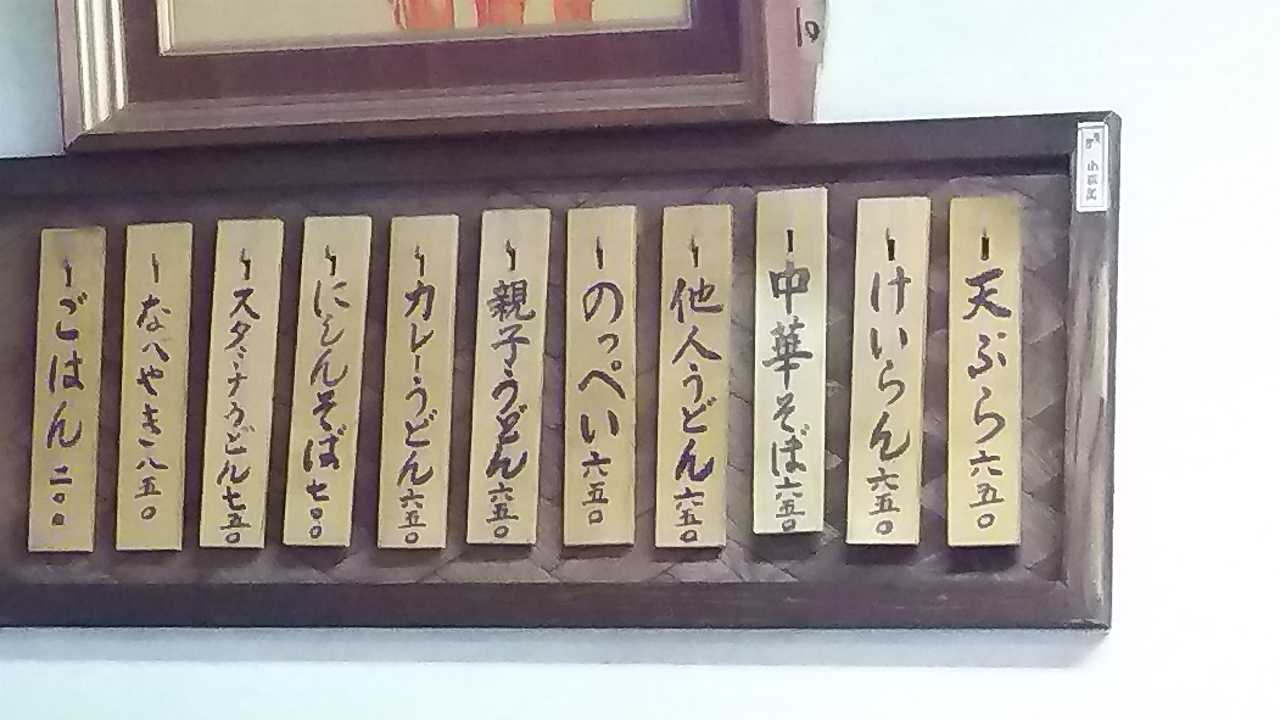 天ぷら六五〇
けいらん六五〇
中華そば六五〇
他人うどん六五〇
のっぺい六五〇
親子うどん六五〇
カレーうどん六五〇
にしんそば七〇〇
スタミナうどん七五〇
なべやき八五〇
ごはん二〇〇